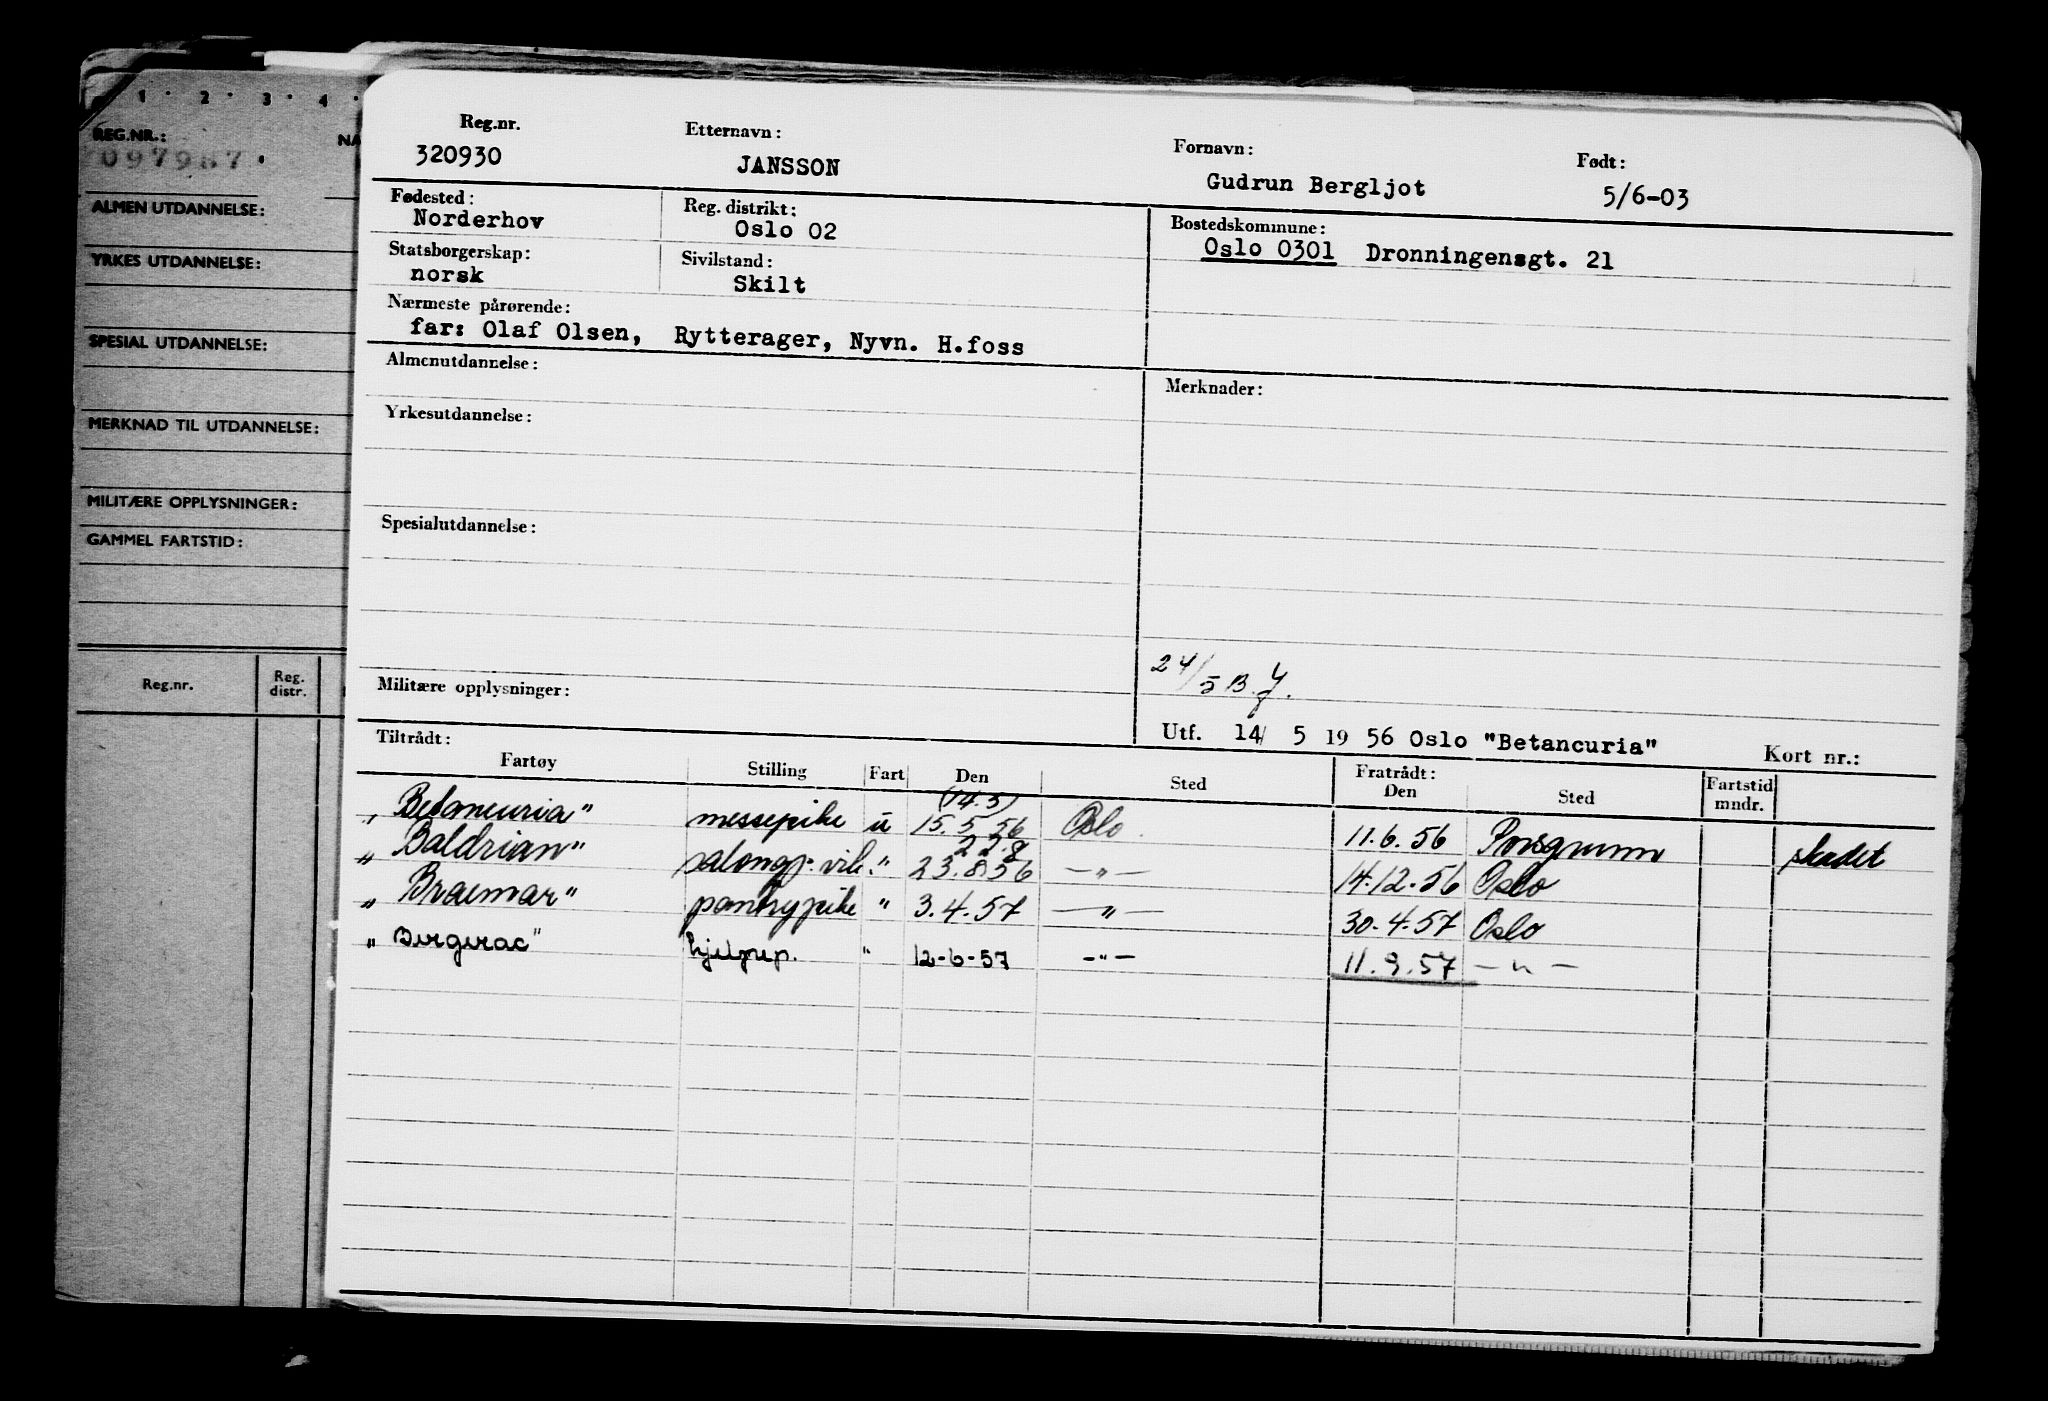 1 . 2 . 3 . 4 .
REG.NR.: NA
097987.
ALMEN UTDANNELSE:
YRKES UTDANNELSE:
SPESIAL UTDANNELSE:
MERKNAD TIL UTDANNELSE:
MILITÆRE OPPLYSNINGER:
GAMMEL FARTSTID:
Reg.nr. Reg. distr.
Reg.nr. Etternavn: Fornavn: Født:
320930 JANSSON Gudrun Bergljot 5/6-03
Fødested: Reg. distrikt: Bostedskommune:
Norderhov Oslo 02 Oslo 0301 Dronningensgt. 21
Statsborgerskap: Sivilstand:
norsk Skilt
Nærmeste pårørende:
far: Olaf Olsen, Rytterager, Nyvn. H.foss
Almenutdannelse: Merknader:
Yrkesutdannelse:
Spesialutdannelse:
24/5 B.J.
Militære opplysninger:
Utf. 14/ 5 19 56 Oslo "Betancuria" Kort nr.:
Tiltrådt: Fratrådt:
Fartøy Stilling Fart Den Sted Den Sted Fartstid mndr.
(14.5)
„ Betancuria" messepike u 15.5.56 Oslo. 11.6.56 Porsgrunn skadet
22.8
„ Baldrian" salongp. vik. " 23.8.56 —"— 14.12.56 Oslo
„ Braemar" pantrypike " 3.4.57 —"— 30.4.57 Oslo
„ Bergerac" hjelpep. " 12-6-57 -"- 11.9.57 —"—